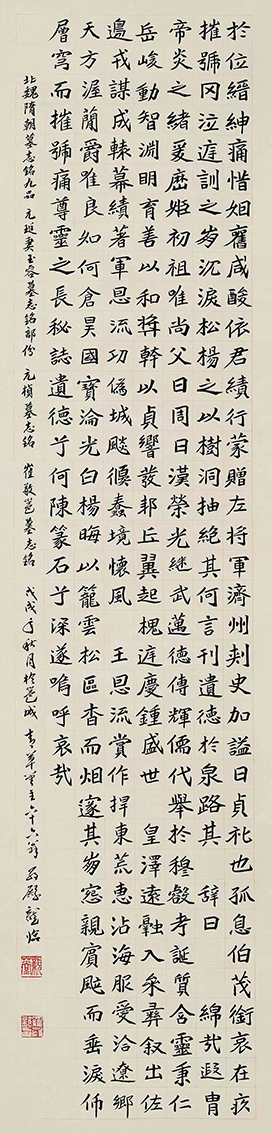 於位縉紳痛惜姻舊咸酸依君績行蒙贈左將軍濟州刺史加謚曰貞礼也孤息伯茂銜哀在疚
摧號罔泣遳訓之岁沉淚松楊之以樹洞抽絕其何言刊遺德於泉路其 辞曰 綿㢤遐胄
帝炎之緒爰歷姬初祖唯尚父曰周曰漢榮光継武萬德傳輝儒代舉於穆叡考誕質含靈秉仁
岳峻動智淵明育善以和奬幹以貞響發邦丘翼起槐遳慶鍾盛世 皇澤遠融入釆彝叙出佐
邊戎謀成轅幕績著軍思流功偽城颰偃蠢境懷風 王恩流賞作捍東荒惠沾海服愛洽遼鄉
天方渥蘭爵唯良如何倉昊國寶淪光白楊晦以籠雲松區杳而烟邃其岁窓親賓颰而垂淚俤
層穹而摧號痛尊靈之長秘誌遺德兮何陳篆石兮深遂嗚呼哀㢤
北魏隋朝墓志銘九品 元珽妻玉容墓志銘部份 元楨墓志銘 崔敬邕墓志銘 戊戌年秋月於邕城 青草堂主六十六翁